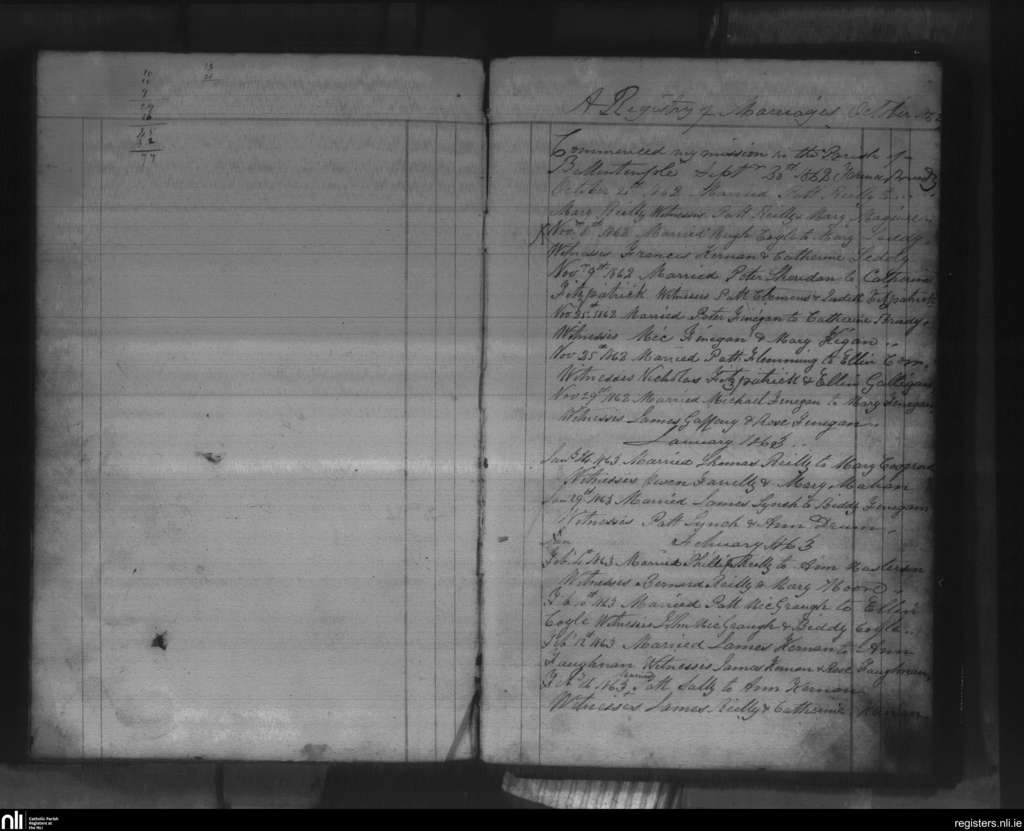 10
11
7
27
18
45
32
77
13
21
A Registry of Marriages October 1862
Commenced my mission in the Parish of
Ballintemple Sept 30th 1862
October 2nd 1862 Married Patt Reilly to
Mary Reilly Witnesses Patt Reilly & Mary Maguire
X Nov 6th 1862 Married Hugh Coyle to Mary Leddy
Witnesses Francis Kernan & Catherine Leddy
Nov 9th 1862 Married Peter Sheridan to Catherine
Fitzpatrick Witnesses Patt Clemens & Judith Fitzpatrick
Nov 25th 1862 Married Peter Finegan to Catherine Brady
Witnesses Mic Finegan & Mary Figan
Nov 25th 1862 Married Patt Flemming to Ellin
Witnesses Nicholas Fitzpatrick & Ellin Galligan
Nov 29th 1862 Married Michael Finegan to Mary Finegan
Witnesses James Gaffeny & Rose Finegan
January 1863
1863 Married Thomas Reilly to Mary
Witnesses Owen Farrelly & Mary Mahan
Jan 29th 1863 Married James Lynch to Biddy Finegan
Witnesses Patt Lynch & Ann Drum
February 1863
Feb 1863 Married Phillip Reilly to Ann Masterson
Witnesses Bernard Reilly & Mary Moore
Feb 10th 1863 Married Patt McGraugh to Ellin
Coyle Witnesses John McGraugh & Biddy Coyle
Feb 12th 1863 Married James Kernan to Ann
Faughnan Witnesses James Kernan & Rose Faughnan
Feb 1863 Married Patt Sally to Ann Kernan
Witnesses James Reilly & Catherine Kernan
nli
Catholic Parish
Registers at
the NLI
registers.nli.ie